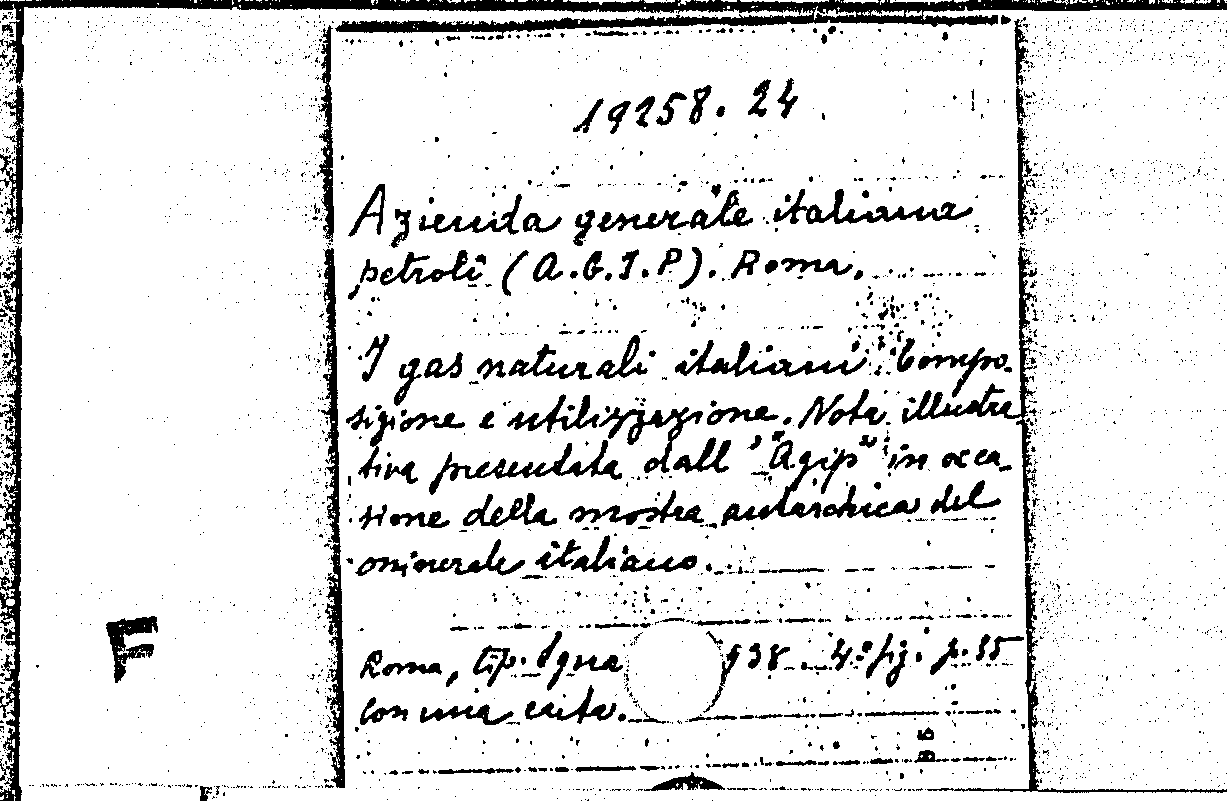 19258.24
Azienda generale italiana
petroli (A.G.I.P). Roma.
I gas naturali italiani. Compo-
sizione e utilizzazione. Nota illustra
tiva presentata dall' "Agip" in occa-
sione della mostra autarchica del
minerale italiano.
Roma, tip. 938. 4° fig. p. 35
con una carta.
F